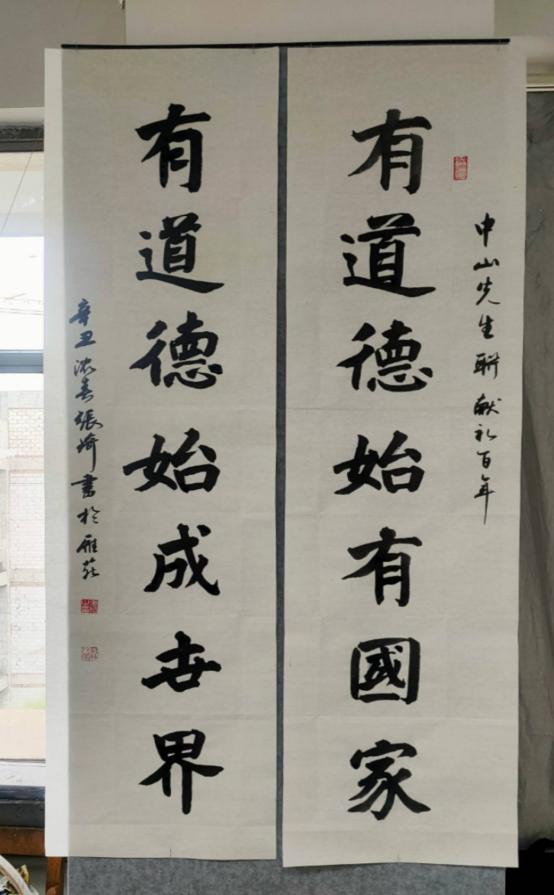 中山先生聯献礼百年
有道德始有國家
有道德始成世界
辛丑浓春張崎書於雁苑